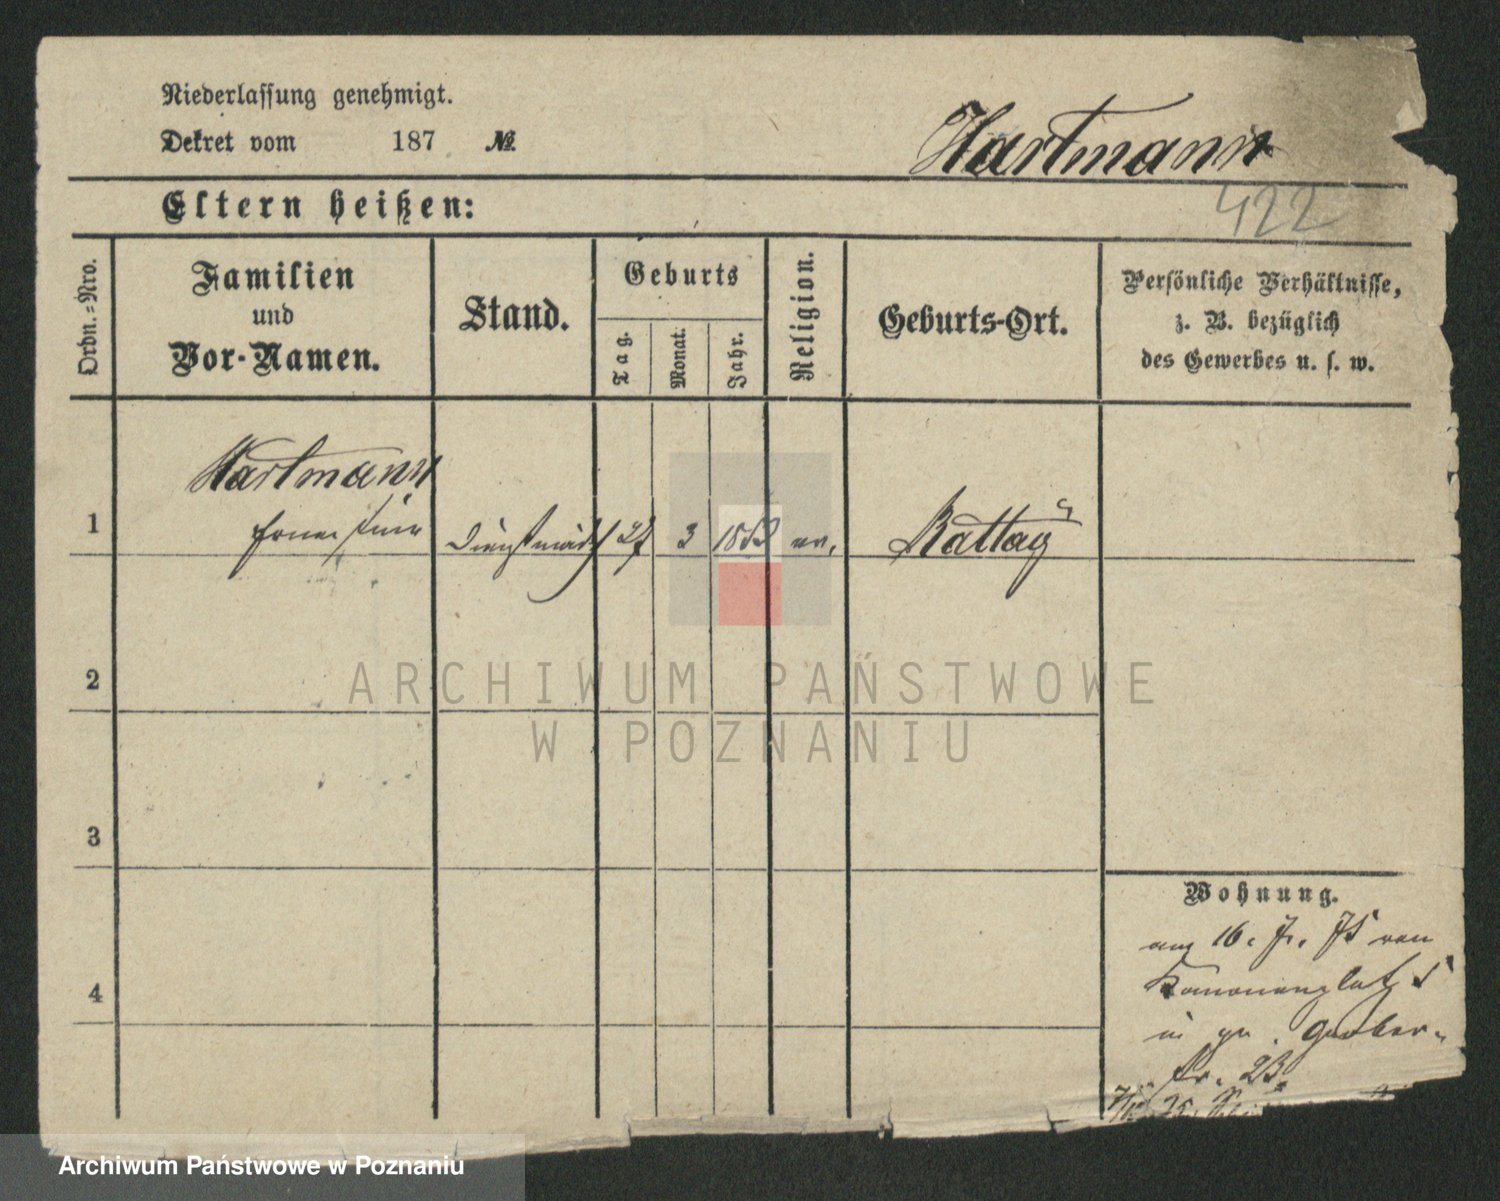 Niederlassung genehmigt.
Dekret vom 187 №
Hartmann
422
Eltern heißen:
Ordn.-Nro.
Familien
und
Vor-Namen.
Stand.
Geburts
Tag.
Monat.
Jahr.
Religion.
Geburts-Ort.
Persönliche Verhältnisse,
z. B. bezüglich
des Gewerbes u. s. w.
Hartmann
1 Ernestine Dienstmädch 27 3 1853 ev. Rattay
2
ARCHIWUM PAŃSTWOWE
W POZNANIU
3
Wohnung.
16. 75 von
Kanonenplatz 5
in gr. Gerber-
str. 23
4
Archiwum Państwowe w Poznaniu